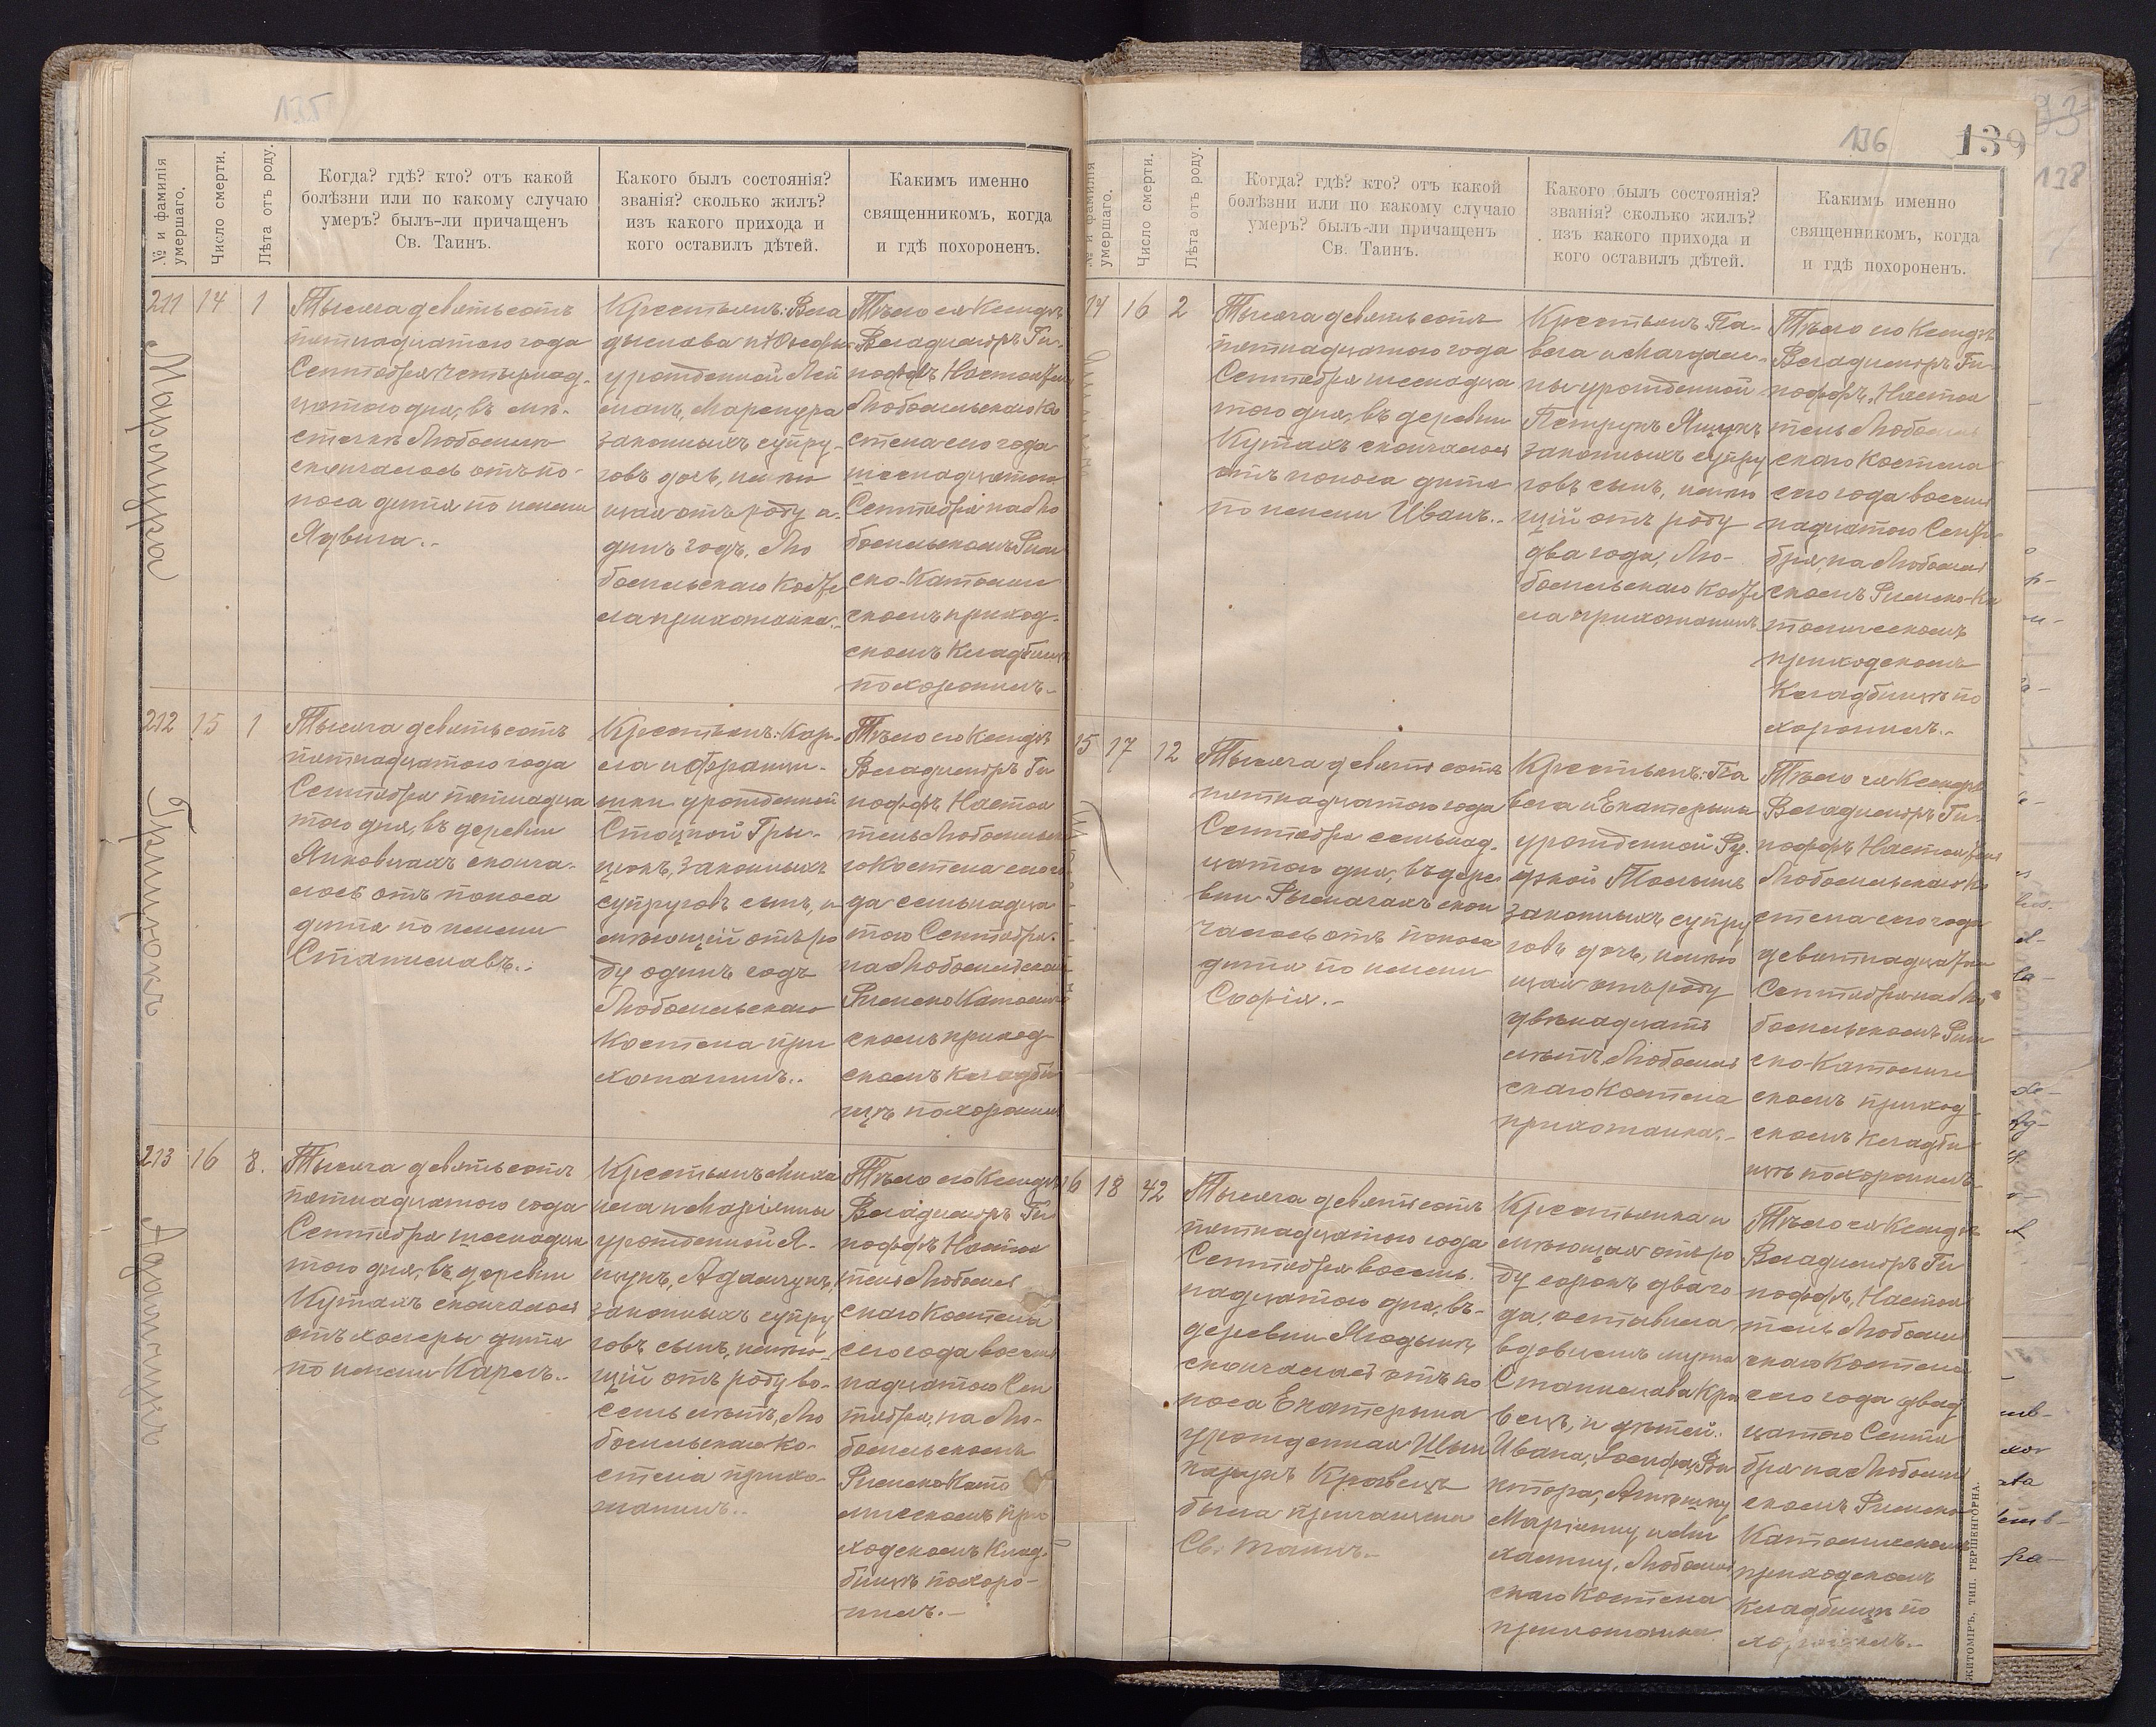 135
№ и фамилія умершаго.
Число смерти.
Лѣта отъ роду.
Когда? гдѣ? кто? отъ какой
болѣзни или по какому случаю
умеръ? былъ-ли причащенъ
Св. Таинъ.
Какого былъ состоянія?
званія? сколько жилъ?
изъ какого прихода и
кого оставилъ дѣтей.
Какимъ именно
священникомъ, когда
и гдѣ похороненъ.
211 14 1
Тысяча девятьсотъ
пятнадцатого года
Сентября четырнад-
цатого дня, въ мѣ-
стечкѣ Любомлѣ
скончалось отъ по-
носа дитя по имени
Ядвига.
Крестьянъ: Вла
дислава и Юзефы
урожденной
законныхъ супру-
говъ дочь, имѣю
щая отъ роду о-
динъ годъ, Лю
бомльскаго Косте
ла прихожанка.
Тѣло ея Ксендзъ
Владиміръ
Настоятель
Любомльскаго Ко
стела сего года
шестнадцатого
Сентября на Лю
бомльскомъ Рим
ско-Католиче
скомъ приход-
скомъ Кладбищѣ
похоронилъ.
212 15 1
Грицюкъ
Тысяча девятьсотъ
пятнадцатого года
Сентября пятнадца
того дня, въ деревни
сконча-
лось отъ поноса
дитя по имени
Станиславъ.
Крестьянъ: Кар-
ла и Францис-
шки урожденной
Гри-
цюкъ, законныхъ
супруговъ сынъ, и-
мѣющій отъ ро
ду одинъ годъ
Любомльскаго
Костела при
хожанинъ.
Тѣло его Ксендзъ
Владиміръ
Настоя
тель Любомльска
го Костела сего го
да семьнадца
того Сентября
на Любомльскомъ
Римско Католиче
скомъ приход-
скомъ Кладби
щѣ похоронилъ
213 16 8.
Адамчукъ
Тысяча девятьсотъ
пятнадцатого года
Сентября шестнадца
того дня, въ деревни
Кутахъ скончалося
отъ холеры дитя
по имени Каролъ.
Крестьянъ Миха
ила и Маріянны
урожденной Я-
щукъ, Адамчукъ,
законныхъ супру
говъ сынъ, имѣю-
щій отъ роду во-
семь лѣтъ, Лю
бомльскаго Ко-
стела прихо-
жанинъ.
Тѣло его Ксендзъ
Владиміръ
Настоя
тель Любомль
скаго Костела
сего года восемь
надцатого Сен
тября, на Лю-
бомльскомъ
Римско Като
лическомъ при
ходскомъ Клад-
бищѣ похоро-
нилъ.
136
139
93
138
№ и фамилія умершаго.
Число смерти.
Лѣта отъ роду.
Когда? гдѣ? кто? отъ какой
болѣзни или по какому случаю
умеръ? былъ-ли причащенъ
Св. Таинъ.
Какого былъ состоянія?
званія? сколько жилъ?
изъ какого прихода и
кого оставилъ дѣтей.
Какимъ именно
священникомъ, когда
и гдѣ похороненъ.
14 16 2
Тысяча девятьсотъ
пятнадцатого года
Сентября шестнадца
того дня, въ деревни
Кутахъ скончалося
отъ поноса дитя
по имени Иванъ.
Крестьянъ Па-
вла и Магдале-
ны урожденной
Петрукъ Ящукъ
законныхъ супру
говъ сынъ, имѣю
щій отъ роду
два года, Лю-
бомльскаго Косте
ла прихожанинъ
Тѣло его Ксендзъ
Владиміръ
Настоя
тель Любомль
скаго Костела
сего года восемь
надцатого Сентя
бря, на Любомль
скомъ Римско-Ка
толическомъ
приходскомъ
Кладбищѣ по
хоронилъ.
15 17 12
Тысяча девятьсотъ
пятнадцатого года
Сентября семьнад-
цатого дня, въ дере
вни Рымачахъ скон
чалось отъ поноса
дитя по имени
Софія.
Крестьянъ: Па
вла и Екатерины
урожденной
законныхъ супру
говъ дочь, имѣю
щая отъ роду
двѣнадцать
лѣтъ, Любомль
скаго Костела
прихожанка.
Тѣло ея Ксендзъ
Владиміръ
Настоятель
Любомльскаго Ко
стела сего года
девятнадцатого
Сентября на Лю
бомльскомъ Рим
ско-Католиче
скомъ приход-
скомъ Кладби
щѣ похоронилъ
16 18 42
Тысяча девятьсотъ
пятнадцатого года
Сентября восемь-
надцатого дня, въ-
деревни Ягодынѣ
скончалась отъ по
носа Екатерина
урожденная
Кравецъ
была причащена
Св. Таинъ.
Крестьянка и
мѣющая отъ ро
ду сорокъ два го
да, оставила
вдовцемъ мужа
Станислава Кра
вецъ, и дѣтей:
Ивана, Іосифа, Ви
ктора,
Маріянну и Ми
халину, Любомль
скаго Костела
прихожанка
Тѣло ея Ксендзъ
Владиміръ
Настоя
тель Любомль
скаго Костела
сего года двад
цатого Сентя
бря на Любомль
скомъ Римско
Католическомъ
приходскомъ
Кладбищѣ по
хоронилъ.
ЖИТОМІРЪ, ТИП. ГЕРШЕНГОРНА.